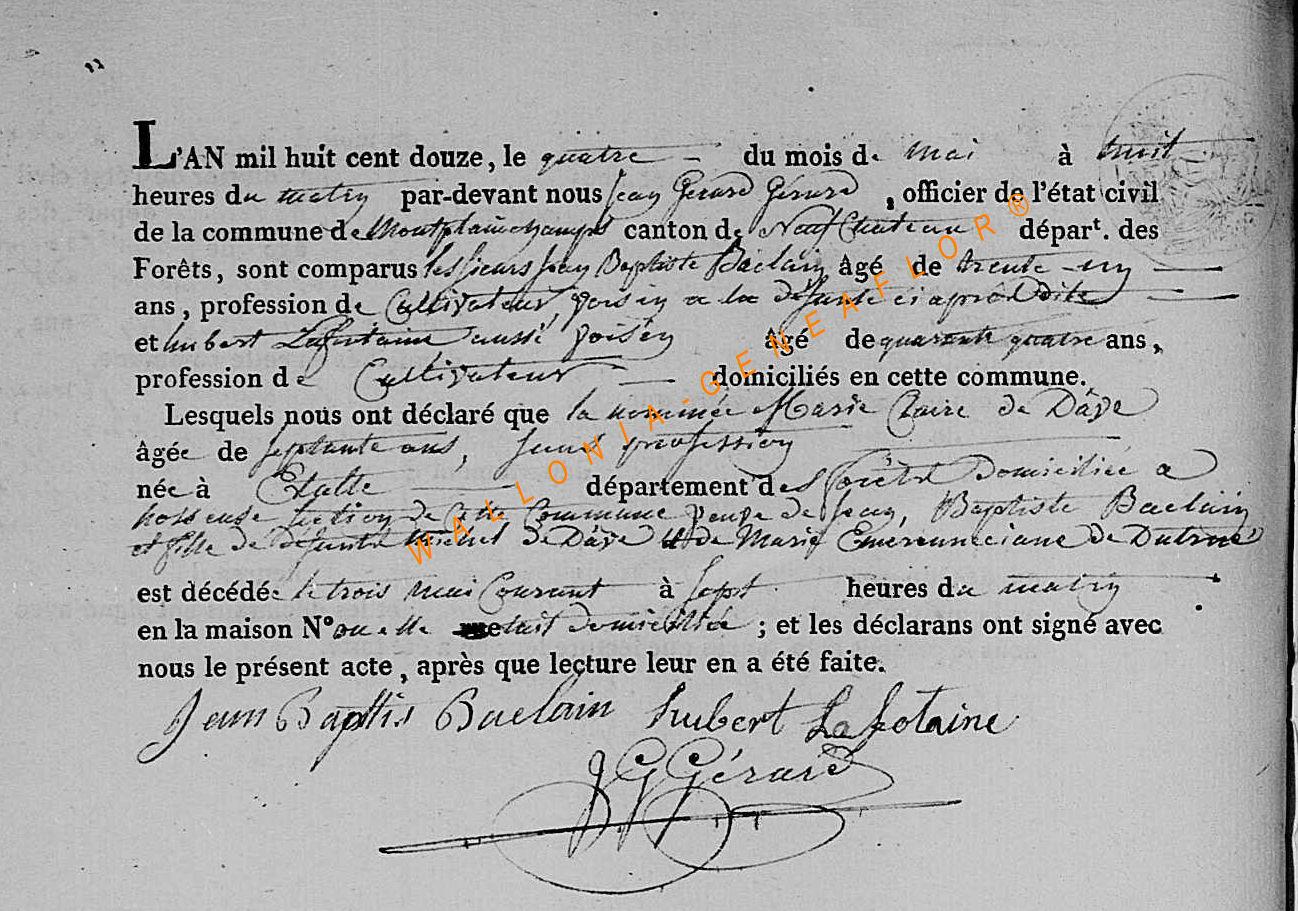 L'AN mil huit cent douze, le quatre du mois de mai à huit
heures du matin par-devant nous Jean Gérard Gérard, officier de l'état civil
de la commune de Montplainchamps canton de Neufchateau départ. des
Forêts, sont comparus les sieurs Jean Baptiste Baclain âgé de trente-un
ans, profession de Cultivateur, voisin a la défunte ci après Dite
et hubert Lafontaine aussi voisin âgé de quarante quatre ans,
profession de Cultivateur domiciliés en cette commune.
Lesquels nous ont déclaré que la nommée Marie Claire de Dave
âgée de septante ans, sans profession
née à Etalle département des forêts Domiciliée a
section de cette Commune veuve de Jean, Baptiste Baclain
et fille de défunts Michel de Dave et de Marie de
est décédée le trois mai Courant à sept heures du matin
en la maison N° ou elle etait domiciliée; et les déclarans ont signé avec
nous le présent acte, après que lecture leur en a été faite.
Jean Baptis Baclain hubert Lafotaine
J G Gérard
WALLONIA-GENEAFLOR®